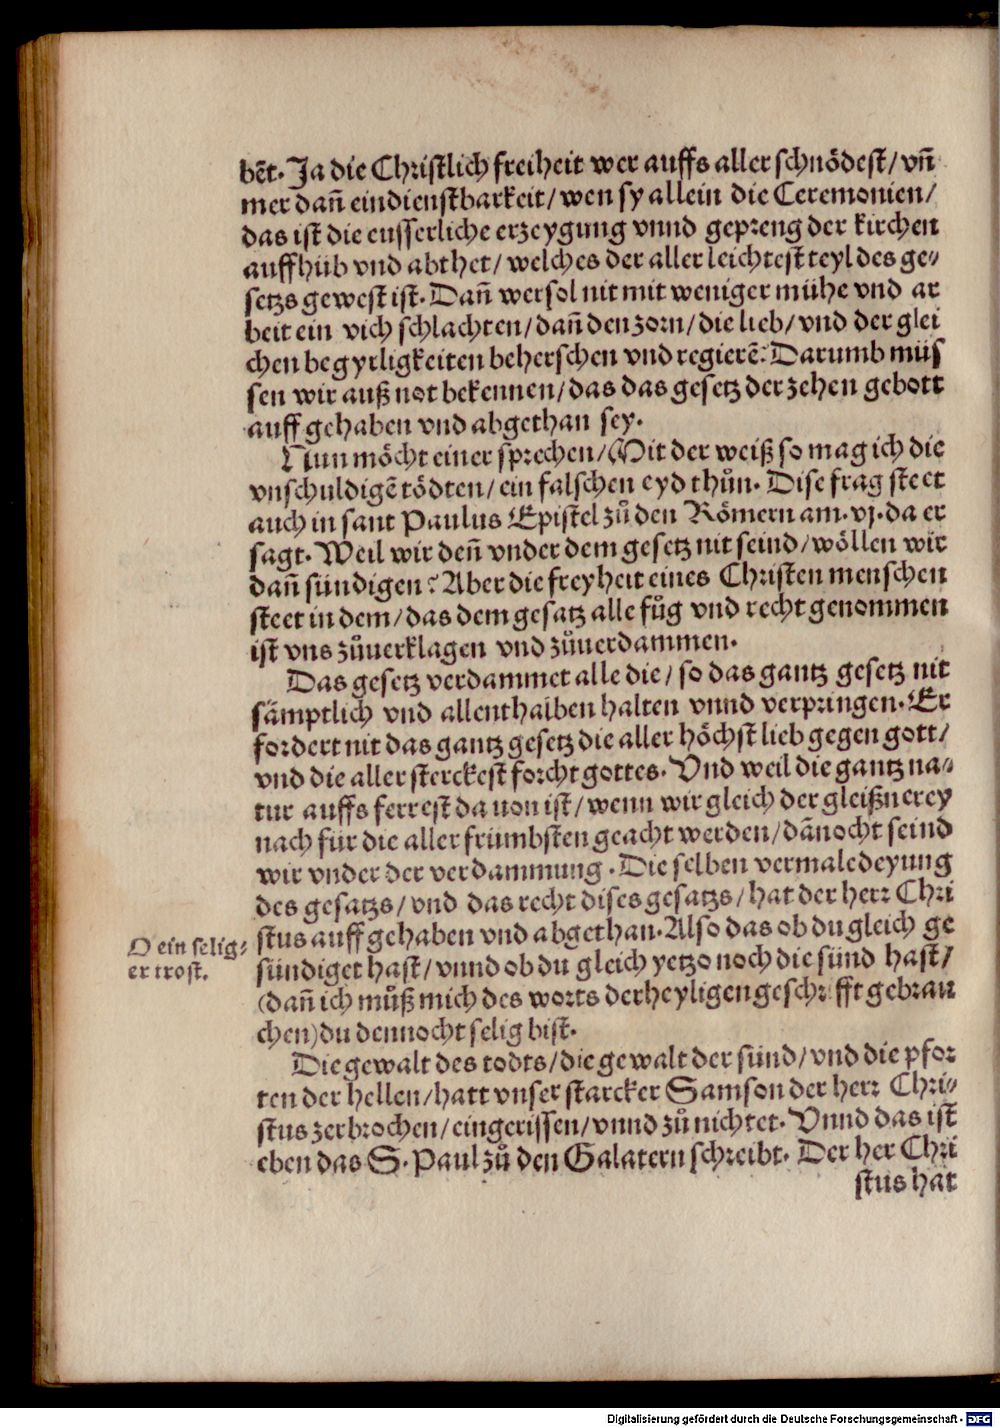 bēt. Ja die Christlich freiheit wer auffs aller schnödest/ vn̄
mer dan̄ ein dienstbarkeit/ wen sy allein die Ceremonien/
das ist die eusserliche erzeygung vnnd gepreng der kirchen
auffhüb vnd abthet/ welches der aller leichtest teyl des ge⸗
setzs gewest ist. Dan̄ wer sol nit mit weniger mühe vnd ar
beit ein vich schlachten/ dan̄ den zorn/ die lieb/ vnd der glei
chen begyrligkeiten beherschen vnd regierē? Darumb müs
sen wir auß not bekennen/ das das gesetz der zehen gebott
auff gehaben vnd abgethan sey.
Nun möcht einer sprechen/ Mit der weiß so mag ich die
vnschuldigē tödten/ ein falschen eyd thůn. Dise frag steet
auch in sant Paulus Epistel zů den Römern am. vj. da er
sagt. Weil wir den̄ vnder dem gesetz nit seind/ wöllen wir
dan̄ sündigen? Aber die freyheit eines Christen menschen
steet in dem/ das dem gesatz alle fůg vnd recht genommen
ist vns zůuerklagen vnd zůuerdammen.
Das gesetz verdammet alle die/ so das gantz gesetz nit
sämptlich vnd allenthalben halten vnnd verpringen. Er
fordert nit das gantz gesetz die aller höchst lieb gegen gott/
vnd die aller sterckest forcht gottes. Vnd weil die gantz na⸗
tur auffs ferrest da uon ist/ wenn wir gleich der gleißnerey
nach für die aller frümbsten geacht werden/ dānocht seind
wir vnder der verdammung. Die selben vermaledeyung
des gesatzs/ vnd das recht dises gesatzs/ hat der herr Chri
stus auff gehaben vnd abgethan. Also das ob du gleich ge
sündiget hast/ vnnd ob du gleich yetzo noch die sünd hast/
(dan̄ ich můß mich des worts der heyligen geschrifft gebrau
chen) du dennocht selig bist.
O ein selig⸗
er trost.
Die gewalt des todts/ die gewalt der sünd/ vnd die pfor
ten der hellen/ hatt vnser starcker Samson der herr Chri⸗
stus zerbrochen/ eingerissen/ vnnd zů nichtet. Vnnd das ist
eben das S. Paul zů den Galatern schreibt. Der her Chri
stus hat
Digitalisierung gefördert durch die Deutsche Forschungsgemeinschaft - DFG